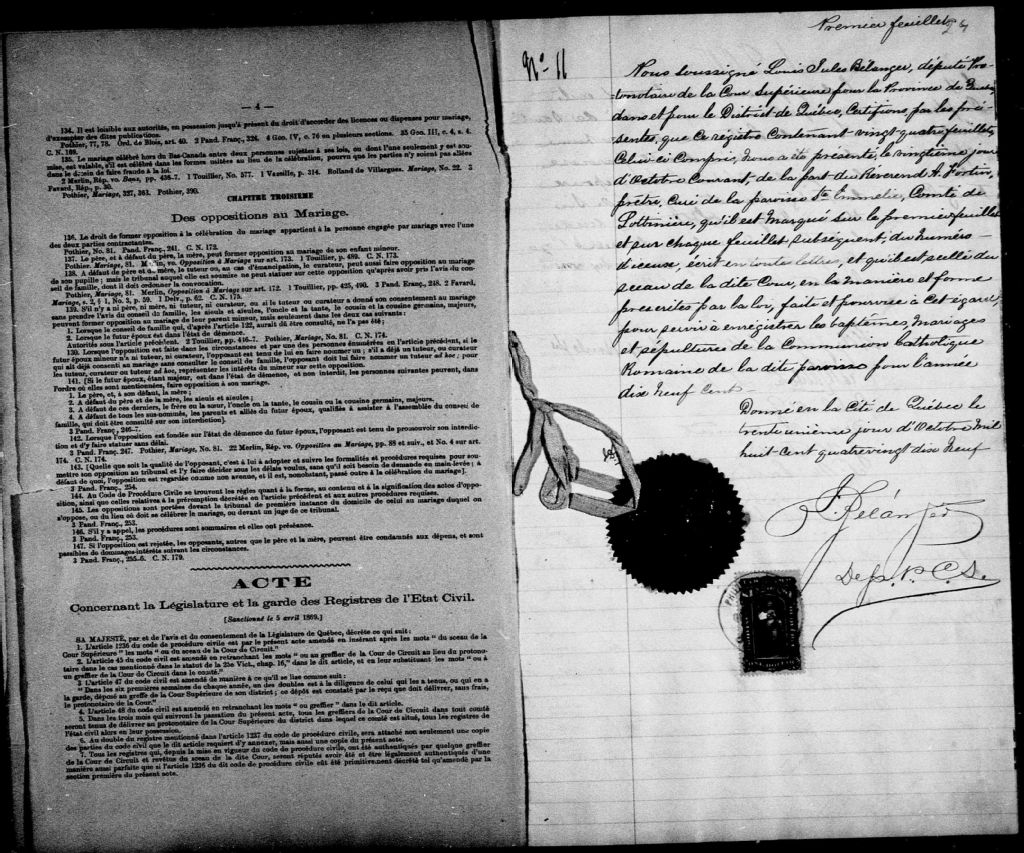 — 4 —
134. Il est loisible aux autorités, en possession jusqu'à présent du droit d'accorder des licences ou dispenses pour mariage,
d'exempter des dites publications.
Pothier, 77, 78. Ord. de Blois, art. 40. 2 Pand. Franç., 324. 4 Geo. IV, c. 76 en plusieurs sections. 35 Geo. III, c. 4, s. 4.
C. N. 169.
135. Le mariage célébré hors du Bas-Canada entre deux personnes sujettes à ses lois, ou dont l'une seulement y est sou-
mise, est valable, s'il est célébré dans les formes usitées au lieu de la célébration, pourvu que les parties n'y soient pas allées
dans le dessein de faire fraude à la loi.
2 Merlin, Rép. vo. Bans, pp. 436-7. 1 Touillier, No. 577. 1 Vazille, p. 314. Rolland de Villargues. Mariage, No. 22. 3
Favard, Rép., p. 30.
Pothier, Mariage, 327, 363. Pothier, 390.
CHAPITRE TROISIEME
Des oppositions au Mariage.
136. Le droit de former opposition à la célébration du mariage appartient à la personne engagée par mariage avec l'une
des deux parties contractantes.
Pothier, No. 81. Pand. Franç., 241. C. N. 172.
137. Le père, et à défaut du père, la mère, peut former opposition au mariage de son enfant mineur.
Pothier, Mariage, 81. vo. Opposition à Mariage sur art. 173. 1 Touillier, p. 489. C. N. 173.
138. A défaut de père et mère, le tuteur ou, au cas d'émancipation, le curateur, peut aussi faire opposition au mariage
de son pupille ; mais le tribunal auquel elle est soumise ne peut statuer sur cette opposition qu'après avoir pris l'avis du con-
seil de famille, dont il doit ordonner la convocation.
Pothier, Mariage, 81. Merlin, Opposition à Mariage sur art. 172. 1 Touillier, pp. 425, 490. 3 Pand. Franç., 248. 2 Favard,
Mariage, c. 2, § 1, No. 3, p. 59. 1 Delv., p. 62. C. N. 175.
139. S'il n'y a ni père, ni mère, ni tuteur, ni curateur, ou si le tuteur ou curateur a donné son consentement au mariage
sans prendre l'avis du conseil de famille, les aïeuls et aïeules, l'oncle et la tante, le cousin et la cousine germains, majeurs,
peuvent former opposition au mariage de leur parent mineur, mais seulement dans les deux cas suivants :
1. Lorsque le conseil de famille qui, d'après l'article 122, aurait dû être consulté, ne l'a pas été ;
2. Lorsque le futur époux est dans l'état de démence.
Autorités sous l'article précédent. 2 Touillier, pp. 416-7. Pothier, Mariage, No. 81. C. N. 174.
130. Lorsque l'opposition est faite dans les circonstances et par une des personnes énumérées en l'article précédent, si le
futur époux mineur n'a ni tuteur, ni curateur, l'opposant est tenu de lui en faire nommer un ; s'il a déjà un tuteur, ou curateur
qui ait déjà consenti au mariage sans consulter le conseil de famille, l'opposant doit lui faire nommer un tuteur ad hoc ; pour
les tuteur, curateur ou tuteur ad hoc, représenter les intérêts du mineur sur cette opposition.
141. [Si le futur époux, étant majeur, est dans l'état de démence, et non interdit, les personnes suivantes peuvent, dans
l'ordre où elles sont mentionnées, faire opposition à son mariage.
1. Le père, et, à son défaut, la mère ;
2. A défaut du père et de la mère, les aïeuls et aïeules ;
3. A défaut de ces derniers, le frère ou la sœur, l'oncle ou la tante, le cousin ou la cousine germains, majeurs.
4. A défaut de tous les sus-nommés, les parents et alliés du futur époux, qualifiés à assister à l'assemblée du conseil de
famille, qui doit être consulté sur son interdiction]
3 Pand. Franç., 246-7.
142. Lorsque l'opposition est fondée sur l'état de démence du futur époux, l'opposant est tenu de promouvoir son interdic-
tion et d'y faire statuer sans délai.
3 Pand. Franç. 247. Pothier, Mariage, No. 81. 22 Merlin, Rép. vo. Opposition au Mariage, pp. 88 et suiv., et No. 4 sur art.
174. C. N. 174.
143. [Quelle que soit la qualité de l'opposant, c'est à lui à adopter et suivre les formalités et procédures requises pour sou-
mettre son opposition au tribunal et l'y faire décider sous les délais voulus, sans qu'il soit besoin de demande en main-levée ; à
défaut de quoi, l'opposition est regardée comme non avenue, et il est, nonobstant, passé outre à la célébration du mariage].
3 Pand. Franç., 254.
144. Au Code de Procédure Civile se trouvent les règles quant à la forme, au contenu et à la signification des actes d'oppo-
sition, ainsi que celles relatives à la préremption décrétée en l'article précédent et aux autres procédures requises.
145. Les oppositions sont portées devant le tribunal de première instance du domicile de celui au mariage duquel on
s'oppose, ou du lieu où doit se célébrer le mariage, ou devant un juge de ce tribunal.
3 Pand. Franç., 253.
146. S'il y a appel, les procédures sont sommaires et elles ont préséance.
3 Pand. Franç., 253.
147. Si l'opposition est rejetée, les opposants, autres que le père et la mère, peuvent être condamnés aux dépens, et sont
passibles de dommages-intérêts suivant les circonstances.
3 Pand. Franç., 255-6. C. N. 179.
ACTE
Concernant la Législature et la garde des Registres de l'Etat Civil.
[Sanctionné le 5 avril 1869.]
SA MAJESTÉ, par et de l'avis et du consentement de la Législature de Québec, décrète ce qui suit :
1. L'article 1236 du code de procédure civile est par le présent acte amendé en insérant après les mots " du sceau de la
Cour Supérieure " les mots " ou du sceau de la Cour de Circuit."
2. L'article 45 du code civil est amendé en retranchant les mots " ou au greffier de la Cour de Circuit au lieu du protono-
taire dans le cas mentionné dans le statut de la 25e Vict., chap. 16," dans le dit article, et en leur substituant les mots " ou à
un greffier de la Cour de Circuit dans le comté."
3 L'article 47 du code civil est amendé de manière à ce qu'il se lise comme suit :
" Dans les six premières semaines de chaque année, un des doubles est à la diligence de celui qui les a tenus, ou qui en a
la garde, déposé au greffe de la Cour Supérieure de son district ; ce dépôt est constaté par le reçu que doit délivrer, sans frais,
le protonotaire de la Cour."
4. L'article 48 du code civil est amendé en retranchant les mots " ou greffier " dans le dit article.
5. Dans les trois mois qui suivront la passation du présent acte, tous les greffiers de la Cour de Circuit dans tout comté
seront tenus de délivrer au protonotaire de la Cour Supérieure du district dans lequel ce comté est situé, tous les registres de
l'état civil alors en leur possession.
6. Au double du registre mentionné dans l'article 1237 du code de procédure civile, sera attaché non seulement une copie
des parties du code civil que le dit article requiert d'y annexer, mais aussi une copie du présent acte.
7. Tous les registres qui, depuis la mise en vigueur du code de procédure civile, ont été authentiqués par quelque greffier
de la Cour de Circuit et revêtus du sceau de la dite Cour, seront réputés avoir été et être légalement authentiqués d'une
manière aussi parfaite que si l'article 1236 du dit code de procédure civile eût été primitivement décrété tel qu'amendé par la
section première du présent acte.
Premier feuillet 24
No. 11
Nous soussigné Louis Jules Bélanger, député Pro-
tonotaire de la Cour Supérieure pour la Province de Québec
dans et pour le District de Québec, Certifions, par les pré-
sentes, que Ce registre Contenant vingt quatre feuillets,
Celui-ci Compris, nous a été présenté, le vingtième jour
d'Octobre Courant, de la part du Reverend A. Fortin,
prêtre, Curé de la paroisse Ste Emmelie, Comté de
Lotbinière, qu'il est Marqué sur le premier feuillet
et sur chaque feuillet subséquent, du numéro
d'iceux, écrit en toutes lettres, et qu'il est scellé du
sceau de la dite Cour, en la manière et forme
prescrites par la loi, faite et pourvue à Cet égard,
pour servir à enregistrer les baptêmes, Mariages
et sépultures de la Communion Catholique
Romaine de la dite paroisse pour l'année
dix Neuf Cent
Donné en la Cité de Québec le
trente unième jour d'Octobre Mil
huit-Cent quatrevingt dix Neuf
J. Bélanger
Dep. P. C. S.